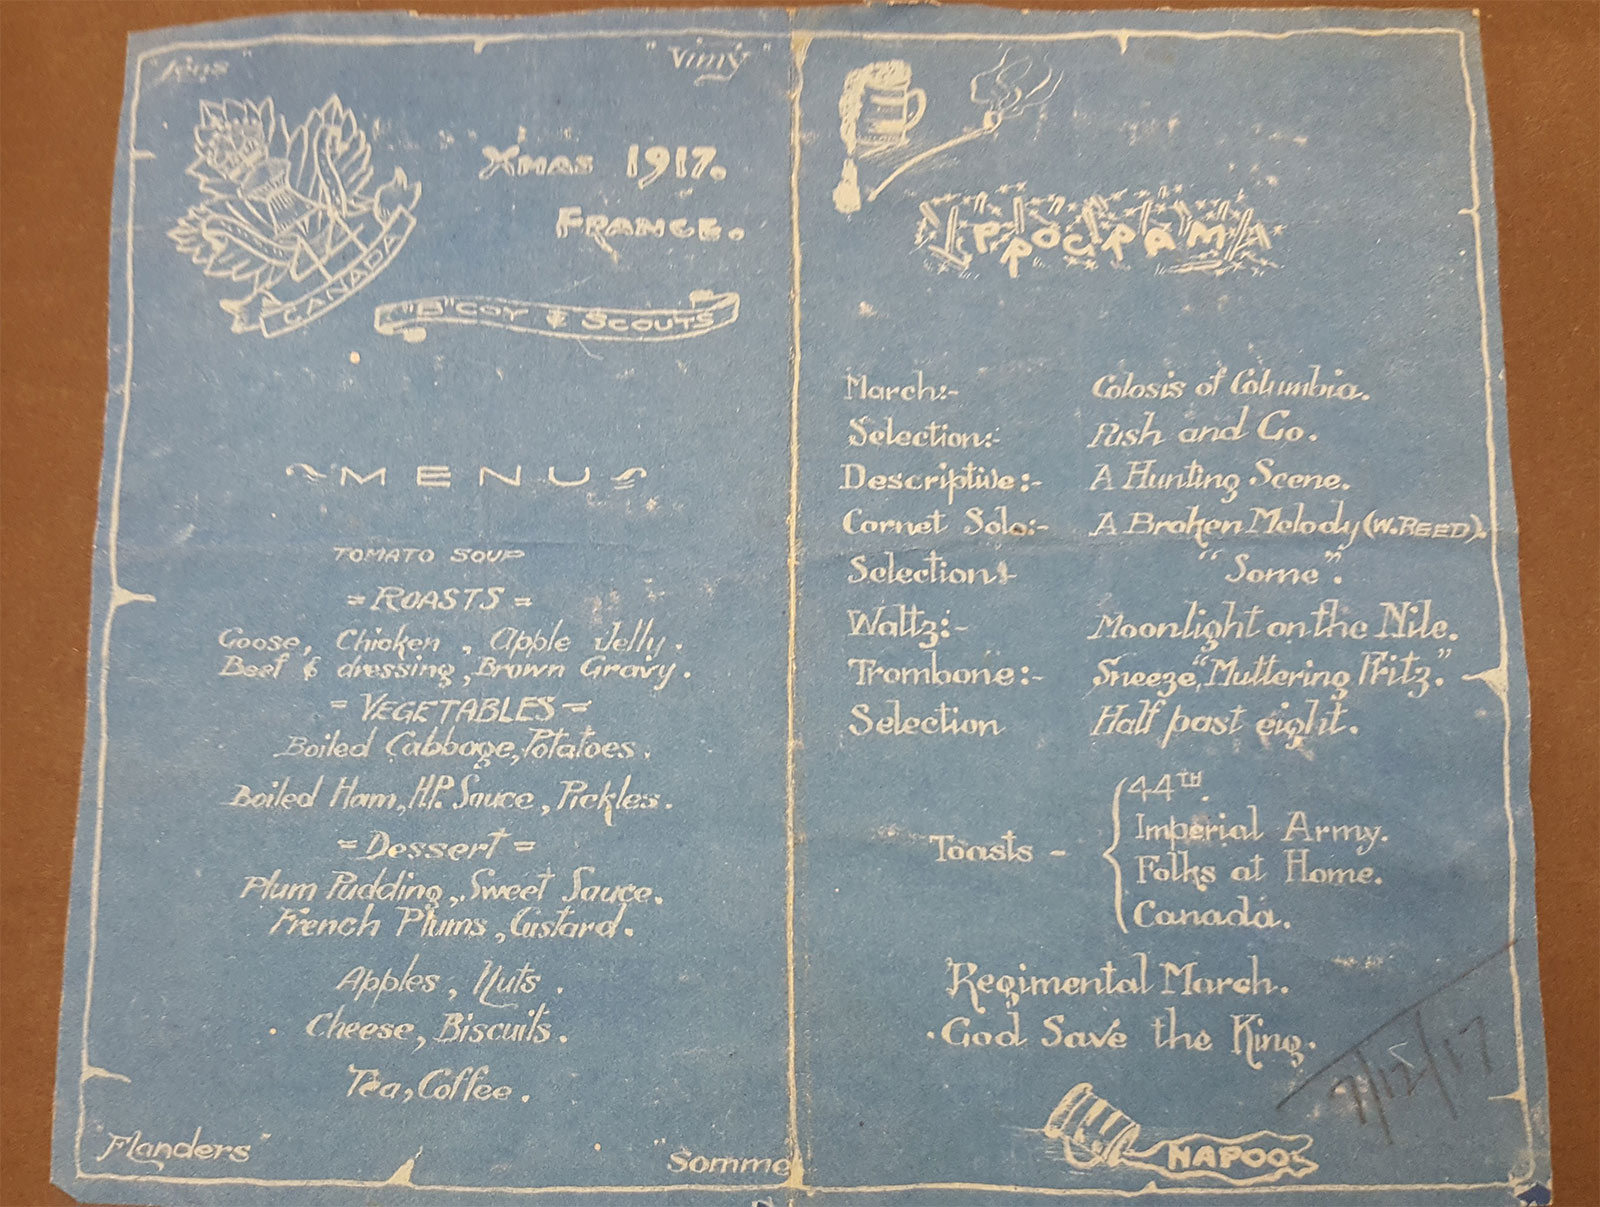 "Lens"
"Vimy"
Xmas 1917.
France.
CANADA
"B" Coy & Scouts
MENU
TOMATO SOUP
= ROASTS =
Goose, Chicken, Apple Jelly.
Beef & dressing, Brown Gravy.
= VEGETABLES =
Boiled Cabbage, Potatoes.
Boiled Ham, H.P. Sauce, Pickles.
= Dessert =
Plum Pudding, Sweet Sauce.
French Plums, Custard.
Apples, Nuts.
Cheese, Biscuits.
Tea, Coffee.
"Flanders"
"Somme
PROGRAM
March:- Colosis of Columbia.
Selection:- Push and Go.
Descriptive:- A Hunting Scene.
Cornet Solo:- A Broken Melody (W. REED).
Selection:- "Some".
Waltz:- Moonlight on the Nile.
Trombone:- Sneeze, "Muttering Fritz."
Selection Half past eight.
Toasts - 44TH.
Imperial Army.
Folks at Home.
Canada.
Regimental March.
God Save the King.
7/12/17
NAPOO